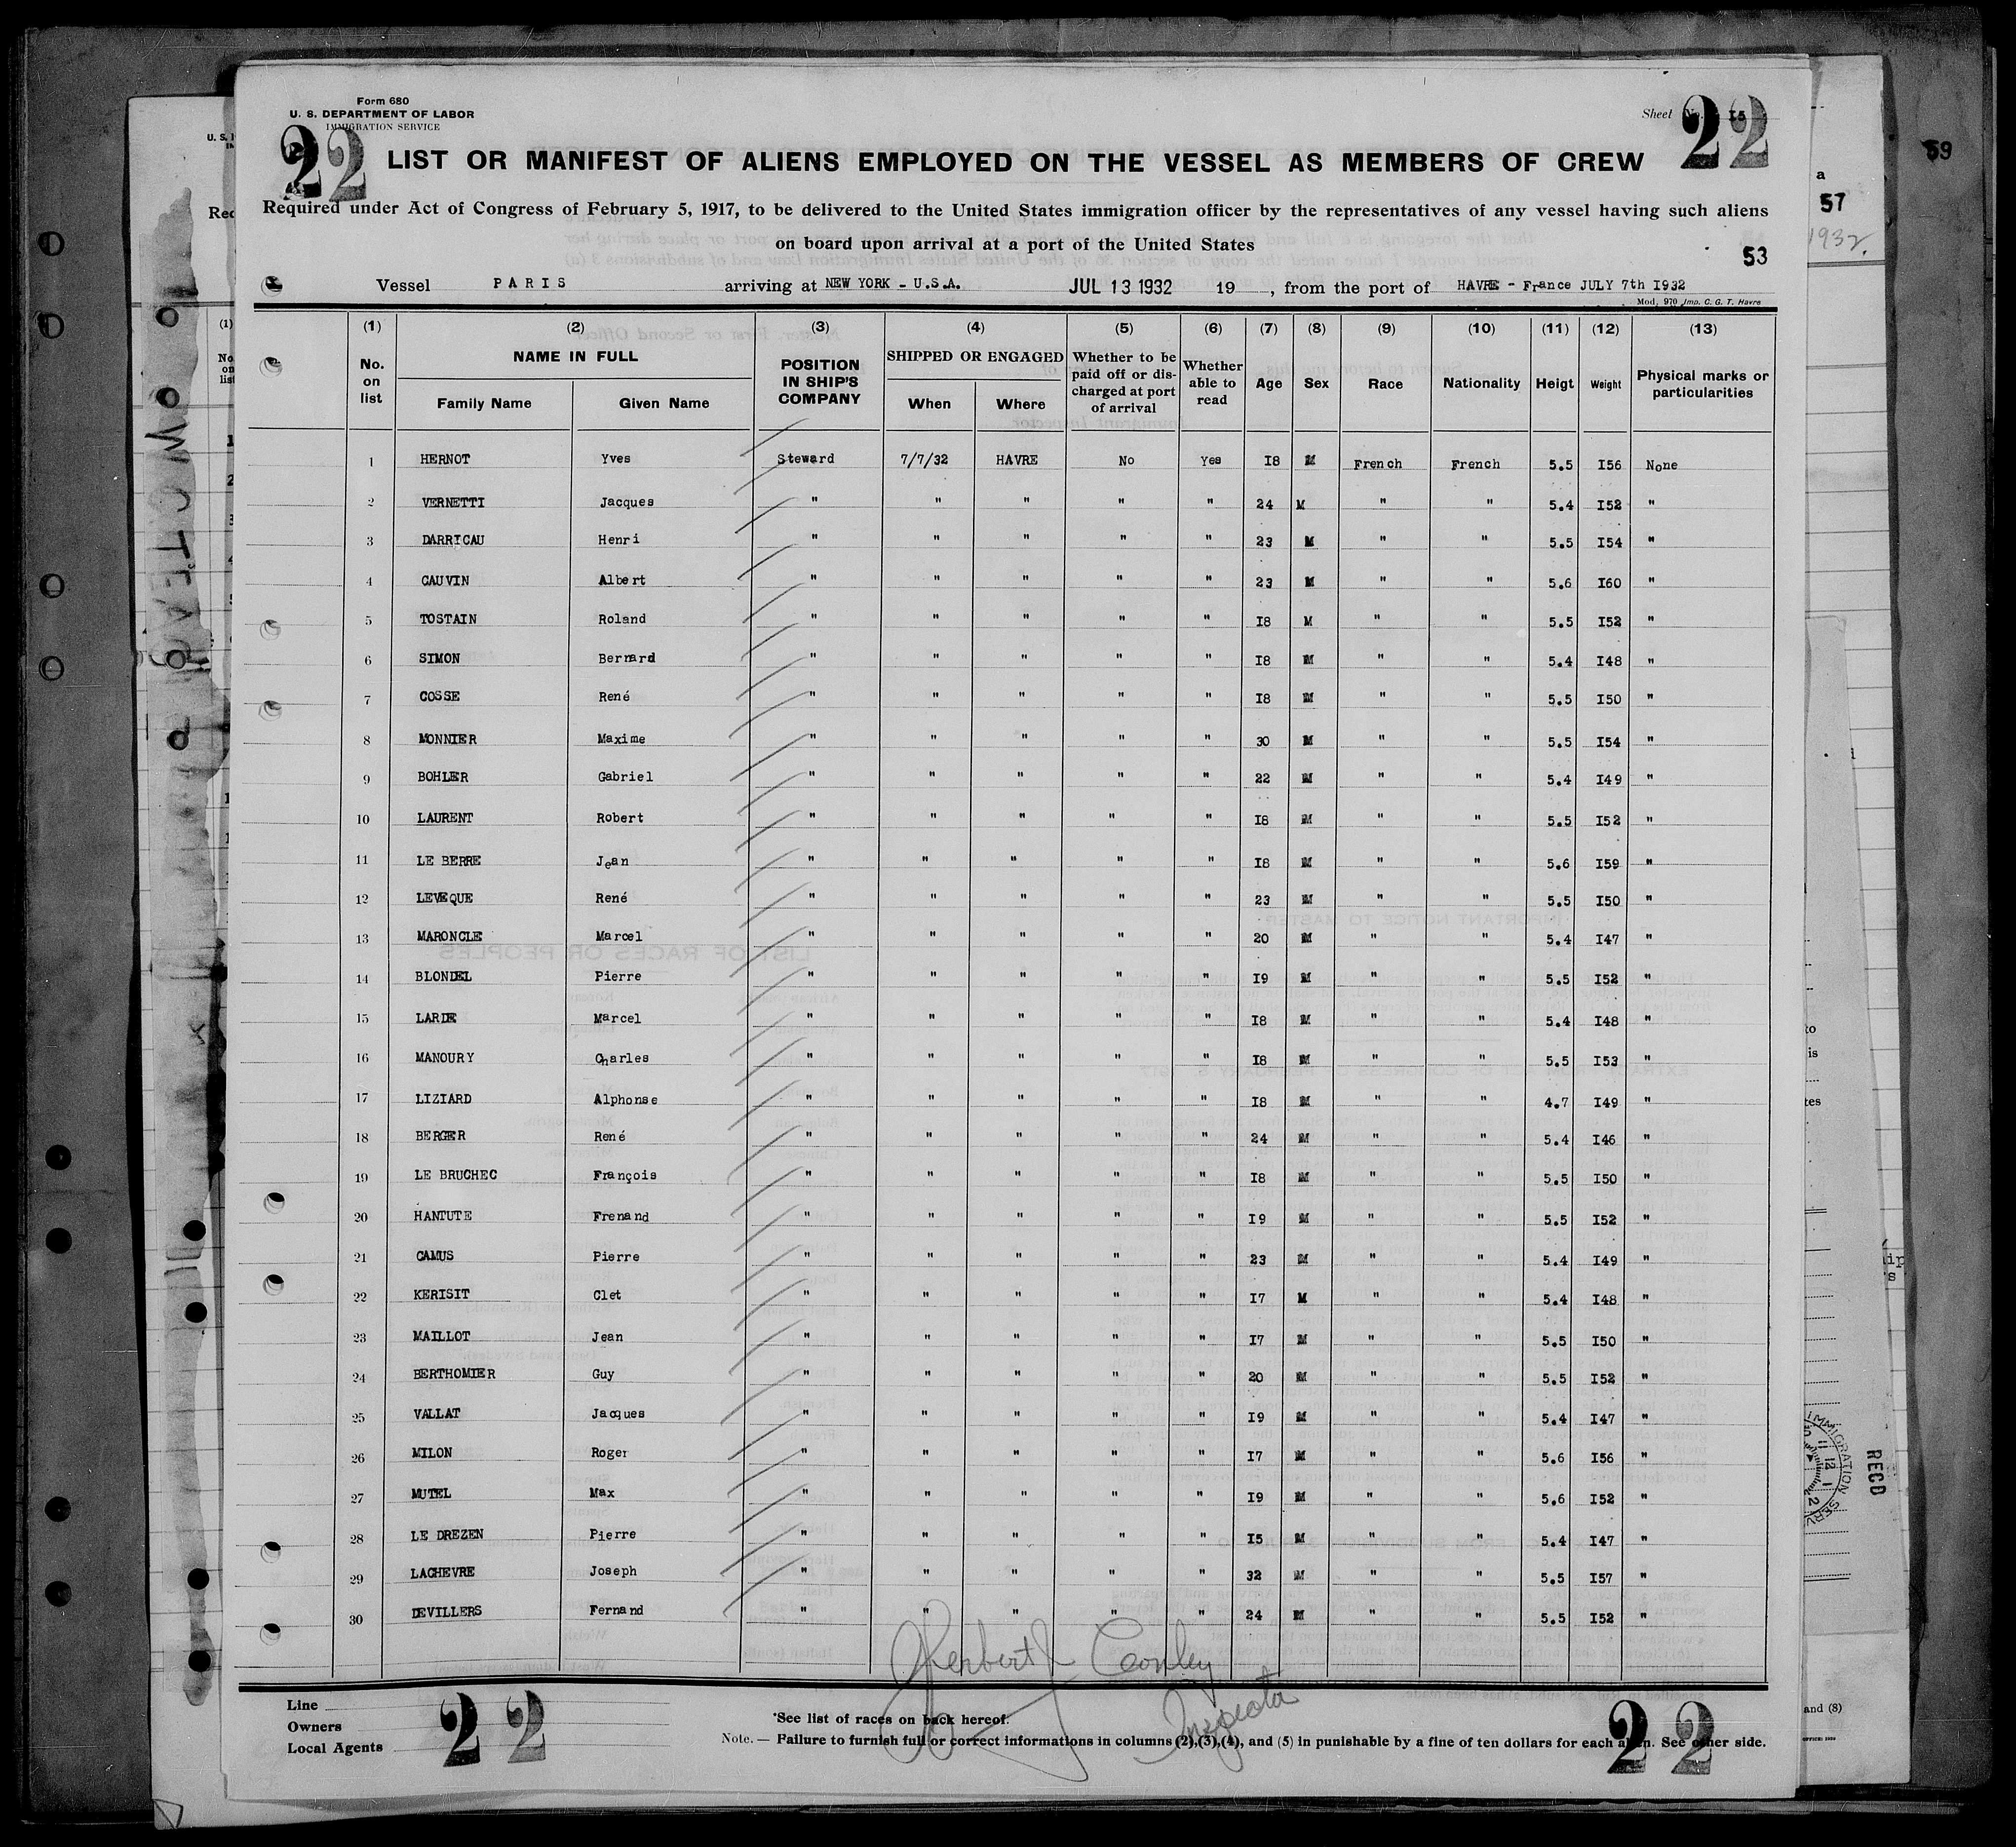 Form 680
U. S. DEPARTMENT OF LABOR
IMMIGRATION SERVICE
Sheet No. I5
22
22
LIST OR MANIFEST OF ALIENS EMPLOYED ON THE VESSEL AS MEMBERS OF CREW
Required under Act of Congress of February 5, 1917, to be delivered to the United States immigration officer by the representatives of any vessel having such aliens
on board upon arrival at a port of the United States
53
Vessel PARIS arriving at NEW YORK - U.S.A. JUL 13 1932 19 , from the port of HAVRE - France JULY 7th I932
Mod. 970 Imp. C. G. T. Havre
(1) (2) (3) (4) (5) (6) (7) (8) (9) (10) (11) (12) (13)
No. on list NAME IN FULL Family Name Given Name POSITION IN SHIP'S COMPANY SHIPPED OR ENGAGED When Where Whether to be paid off or discharged at port of arrival Whether able to read Age Sex Race Nationality Heigt Weight Physical marks or particularities
1 HERNOT Yves Steward 7/7/32 HAVRE No Yes I8 M French French 5.5 I56 None
2 VERNETTI Jacques " " " " " 24 M " " 5.4 I52 "
3 DARRICAU Henri " " " " " 23 M " " 5.5 I54 "
4 CAUVIN Albert " " " " " 23 M " " 5.6 I60 "
5 TOSTAIN Roland " " " " " I8 M " " 5.5 I52 "
6 SIMON Bernard " " " " " I8 M " " 5.4 I48 "
7 COSSE René " " " " " I8 M " " 5.5 I50 "
8 MONNIER Maxime " " " " " 30 M " " 5.5 I54 "
9 BOHLER Gabriel " " " " " 22 M " " 5.4 I49 "
10 LAURENT Robert " " " " " I8 M " " 5.5 I52 "
11 LE BERRE Jean " " " " " I8 M " " 5.6 I59 "
12 LEVEQUE René " " " " " 23 M " " 5.5 I50 "
13 MARONCLE Marcel " " " " " 20 M " " 5.4 I47 "
14 BLONDEL Pierre " " " " " I9 M " " 5.5 I52 "
15 LARDE Marcel " " " " " I8 M " " 5.4 I48 "
16 MANOURY Charles " " " " " I8 M " " 5.5 I53 "
17 LIZIARD Alphonse " " " " " I8 M " " 4.7 I49 "
18 BERGER René " " " " " 24 M " " 5.4 I46 "
19 LE BRUCHEC François " " " " " I8 M " " 5.5 I50 "
20 HANTUTE Frenand " " " " " I9 M " " 5.5 I52 "
21 CAMUS Pierre " " " " " 23 M " " 5.4 I49 "
22 KERISIT Clet " " " " " I7 M " " 5.4 I48 "
23 MAILLOT Jean " " " " " I7 M " " 5.5 I50 "
24 BERTHOMIER Guy " " " " " 20 M " " 5.5 I52 "
25 VALLAT Jacques " " " " " I9 M " " 5.4 I47 "
26 MILON Roger " " " " " I7 M " " 5.6 I56 "
27 MUTEL Max " " " " " I9 M " " 5.6 I52 "
28 LE DREZEN Pierre " " " " " I5 M " " 5.4 I47 "
29 LACHEVRE Joseph " " " " " 32 M " " 5.5 I57 "
30 DEVILLERS Fernand " " " " " 24 M " " 5.5 I52 "
Herbert Conley
Inspector
Line
Owners
Local Agents
22
22
*See list of races on back hereof.
Note. — Failure to furnish full or correct informations in columns (2),(3),(4), and (5) in punishable by a fine of ten dollars for each alien. See other side.
59
57
1932
RECD
IMMIGRATION SERV
and (8)